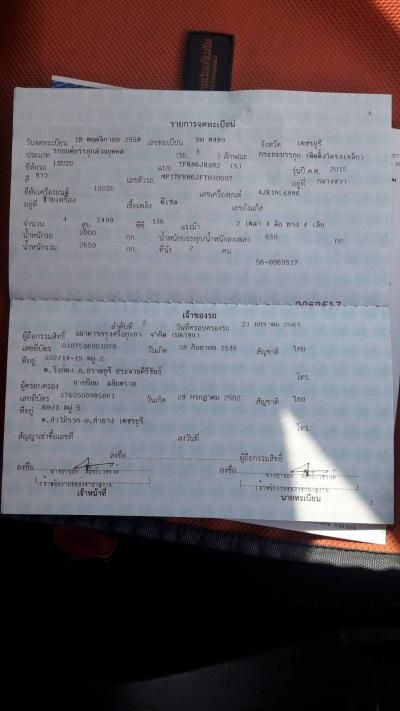 6
รายการจดทะเบียน
วันจดทะเบียน 18 พฤศจิกายน 2558 เลขทะเบียน 8489 จังหวัด เพชรบุรี
ประเภท รถยนต์บรรทุกส่วนบุคคล (รย. 3 ) ลักษณะ กระบะบรรทุก (ติดตั้งโครงเหล็ก)
ยี่ห้อรถ ISUZU แบบ รุ่นปี ค.ศ. 2015
สี ขาว เลขตัวรถ MP1TFR86JFT030507 อยู่ที่ กลางขวา
ยี่ห้อเครื่องยนต์ ISUZU เลขเครื่องยนต์ 4JK1NL6886
อยู่ที่ เชื้อเพลิง ดีเซล เลขถังแก๊ส
จำนวน 4 สูบ 2499 ซีซี 136 แรงม้า 2 เพลา 4 ล้อ ยาง 4 เส้น
น้ำหนักรถ 2000 กก. น้ำหนักบรรทุก/น้ำหนักลงเพลา 650 กก.
น้ำหนักรวม 2650 กก. ที่นั่ง 2 คน
56-0069517
เจ้าของรถ
ลำดับที่ 2 วันที่ครอบครองรถ 23 มกราคม 2563
ผู้ถือกรรมสิทธิ์ ธนาคารกรุงศรีอยุธยา จำกัด (มหาชน)
เลขที่บัตร 0107536001079 วันเกิด 28 กันยายน 2536 สัญชาติ ไทย
ที่อยู่ 502/14-15 หมู่ 2
โทร.
ผู้ครอบครอง
เลขที่บัตร 3760500985861 วันเกิด 28 กรกฎาคม 2502 สัญชาติ ไทย
ที่อยู่ 69/1 หมู่ 5
โทร.
สัญญาเช่าซื้อเลขที่ ลงวันที่
ลงชื่อ ผู้ถือกรรมสิทธิ์
ลงชื่อ ลงชื่อ
เจ้าหน้าที่ นายทะเบียน